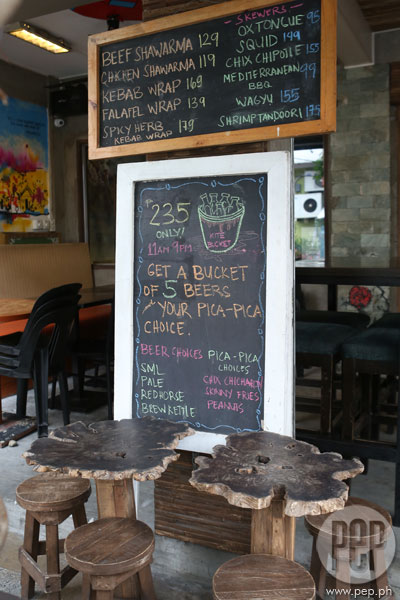 BEEF SHAWARMA 129
CHICKEN SHAWARMA 119
KEBAB WRAP 169
FALAFEL WRAP 139
SPICY HERB 179
KEBAB WRAP
SKEWERS
OX TONGUE 95
SQUID 149
CHIX CHIPOTLE 155
MEDITERRANEAN 99
BBQ
WAGYU 155
SHRIMP TANDOORI 175
235
ONLY!
11AM-9PM
KITE
BUCKET
GET A BUCKET
OF 5 BEERS
YOUR PICA-PICA
CHOICE.
BEER CHOICES
SML
PALE
REDHORSE
BREWKETTLE
PICA-PICA
CHOICES
CHIX CHICHARON
SKINNY FRIES
PEANUTS
PEP
www.pep.ph